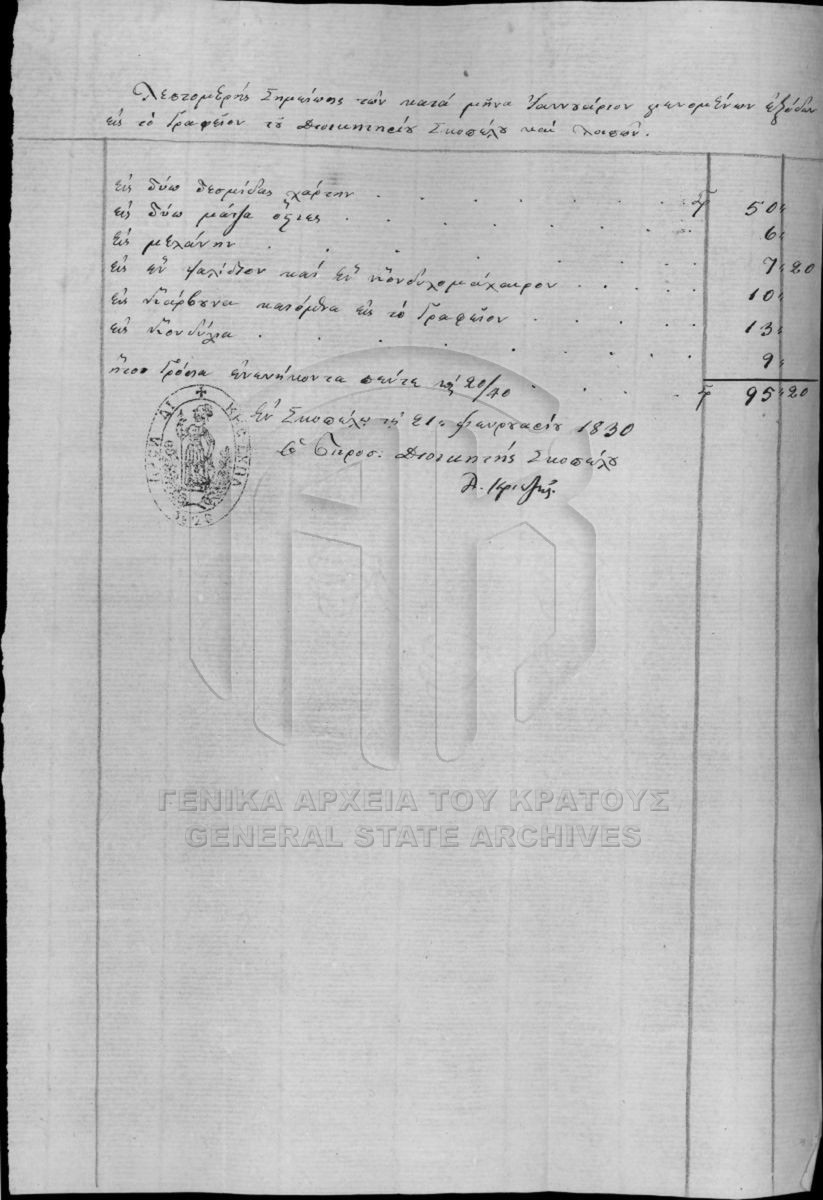 Λεπτομερής Σημείωσις τῶν κατά μῆνα Ἰαννυάριον γενομένων ἐξόδων
εἰς τό Γραφεῖον τοῦ Διοικητηρίου Σκοπέλου καί λοιπῶν.
εἰς δύω δεσμίδας χάρτην . . . . . . . 50"
εἰς δύω μάτζα . . . . . . 6"
εἰς μελάνην . . . . . . . 7"20
εἰς ἕν ψαλίδιον καί ἕν κονδυλομάχαιρον . . . 10"
εἰς κάρβουνα εἰς τό Γραφεῖον . . . . 13"
εἰς κονδύλια . . . . . . . 9"
ἤτοι Γρόσια ἐνενήκοντα πέντε 20/40 . . . . 95"20
Ἐν Σκοπέλῳ τῇ 21 Φευρουαρίου 1830
Ὁ Προσ: Διοικητής Σκοπέλου
ΓΕΝΙΚΑ ΑΡΧΕΙΑ ΤΟΥ ΚΡΑΤΟΥΣ
GENERAL STATE ARCHIVES